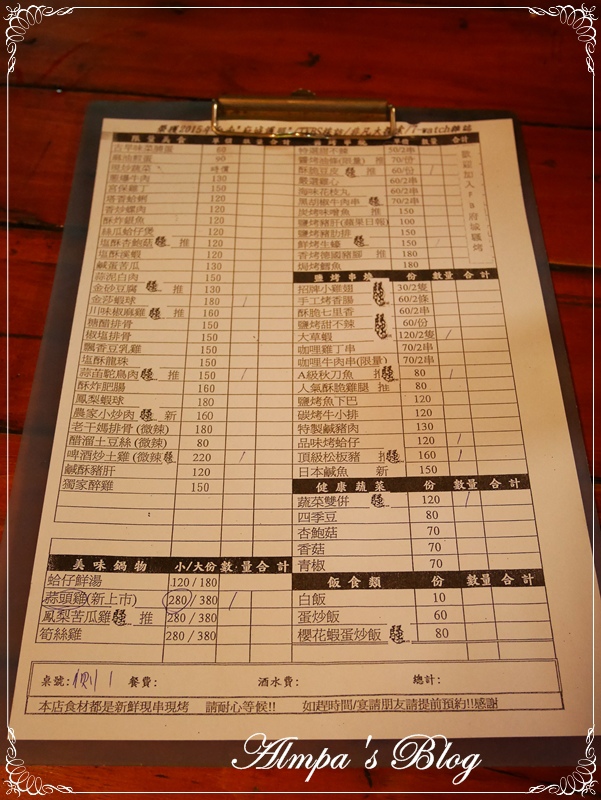 麻油煎蛋 90
現炒蔬菜 時價
蔥爆牛肉 130
宮保雞丁 150
塔香蛤蜊 120
香炒螺肉 120
酥炸銀魚 120
絲瓜蛤仔煲 120
塩酥杏鮑菇 推 120
塩酥溪蝦 120
鹹蛋苦瓜 130
蒜泥白肉 150
金砂豆腐 推 130
金莎蝦球 180 /
川味椒麻雞 推 160
糖醋排骨 150
椒塩排骨 150
飄香豆乳雞 150
塩酥龍珠 150
蒜苗鴕鳥肉 推 150 /
酥炸肥腸 160
鳳梨蝦球 180
農家小炒肉 新 160
老干媽排骨(微辣) 180
醋溜土豆絲(微辣) 80
啤酒炒土雞(微辣 220 /
鹹酥豬肝 120
獨家醉雞 150
美味鍋物 小/大份 數量 合計
蛤仔鮮湯 120/180
蒜頭雞(新上市) 280/380 /
鳳梨苦瓜雞 推 280/380
筍絲雞 280/380
特選甜不辣 50/2串
醬烤油條(限量) 推 70/份
酥脆豆皮 推 60/份 /
嚴選雞心 60/2串
海味花枝丸 60/2串
黑胡椒牛肉串 70/2串
炭烤味噌魚 推 150
鹽烤豬肝(蘋果日報) 100
鹽烤豬肋排 150
鮮烤生蠔 150 /
香烤德國豬腳 推 180
焗烤鱈魚 180
鹽烤串燒 份 數量 合計
招牌小雞翅 30/2隻
手工烤香腸 60/2條
酥脆七里香 60/2串
鹽烤甜不辣 60/份
大草蝦 120/2隻 /
咖哩雞丁串 70/2串
咖哩牛肉串(限量) 70/2串
A級秋刀魚 推 80 /
人氣酥脆雞腿 推 80
鹽烤魚下巴 120
碳烤牛小排 120
特製鹹豬肉 130
品味烤蛤仔 120 /
頂級松板豬 160 /
日本鹹魚 新 150
健康蔬菜 份 數量 合計
蔬菜雙併 120 /
四季豆 80
杏鮑菇 70
香菇 70
青椒 70
飯食類 份 數量 合計
白飯 10
蛋炒飯 60
櫻花蝦蛋炒飯 80
桌號: 餐費: 酒水費: 總計:
本店食材都是新鮮現串現烤 請耐心等候!! 如趕時間/宴請朋友請提前預約!!感謝
Almpa's Blog